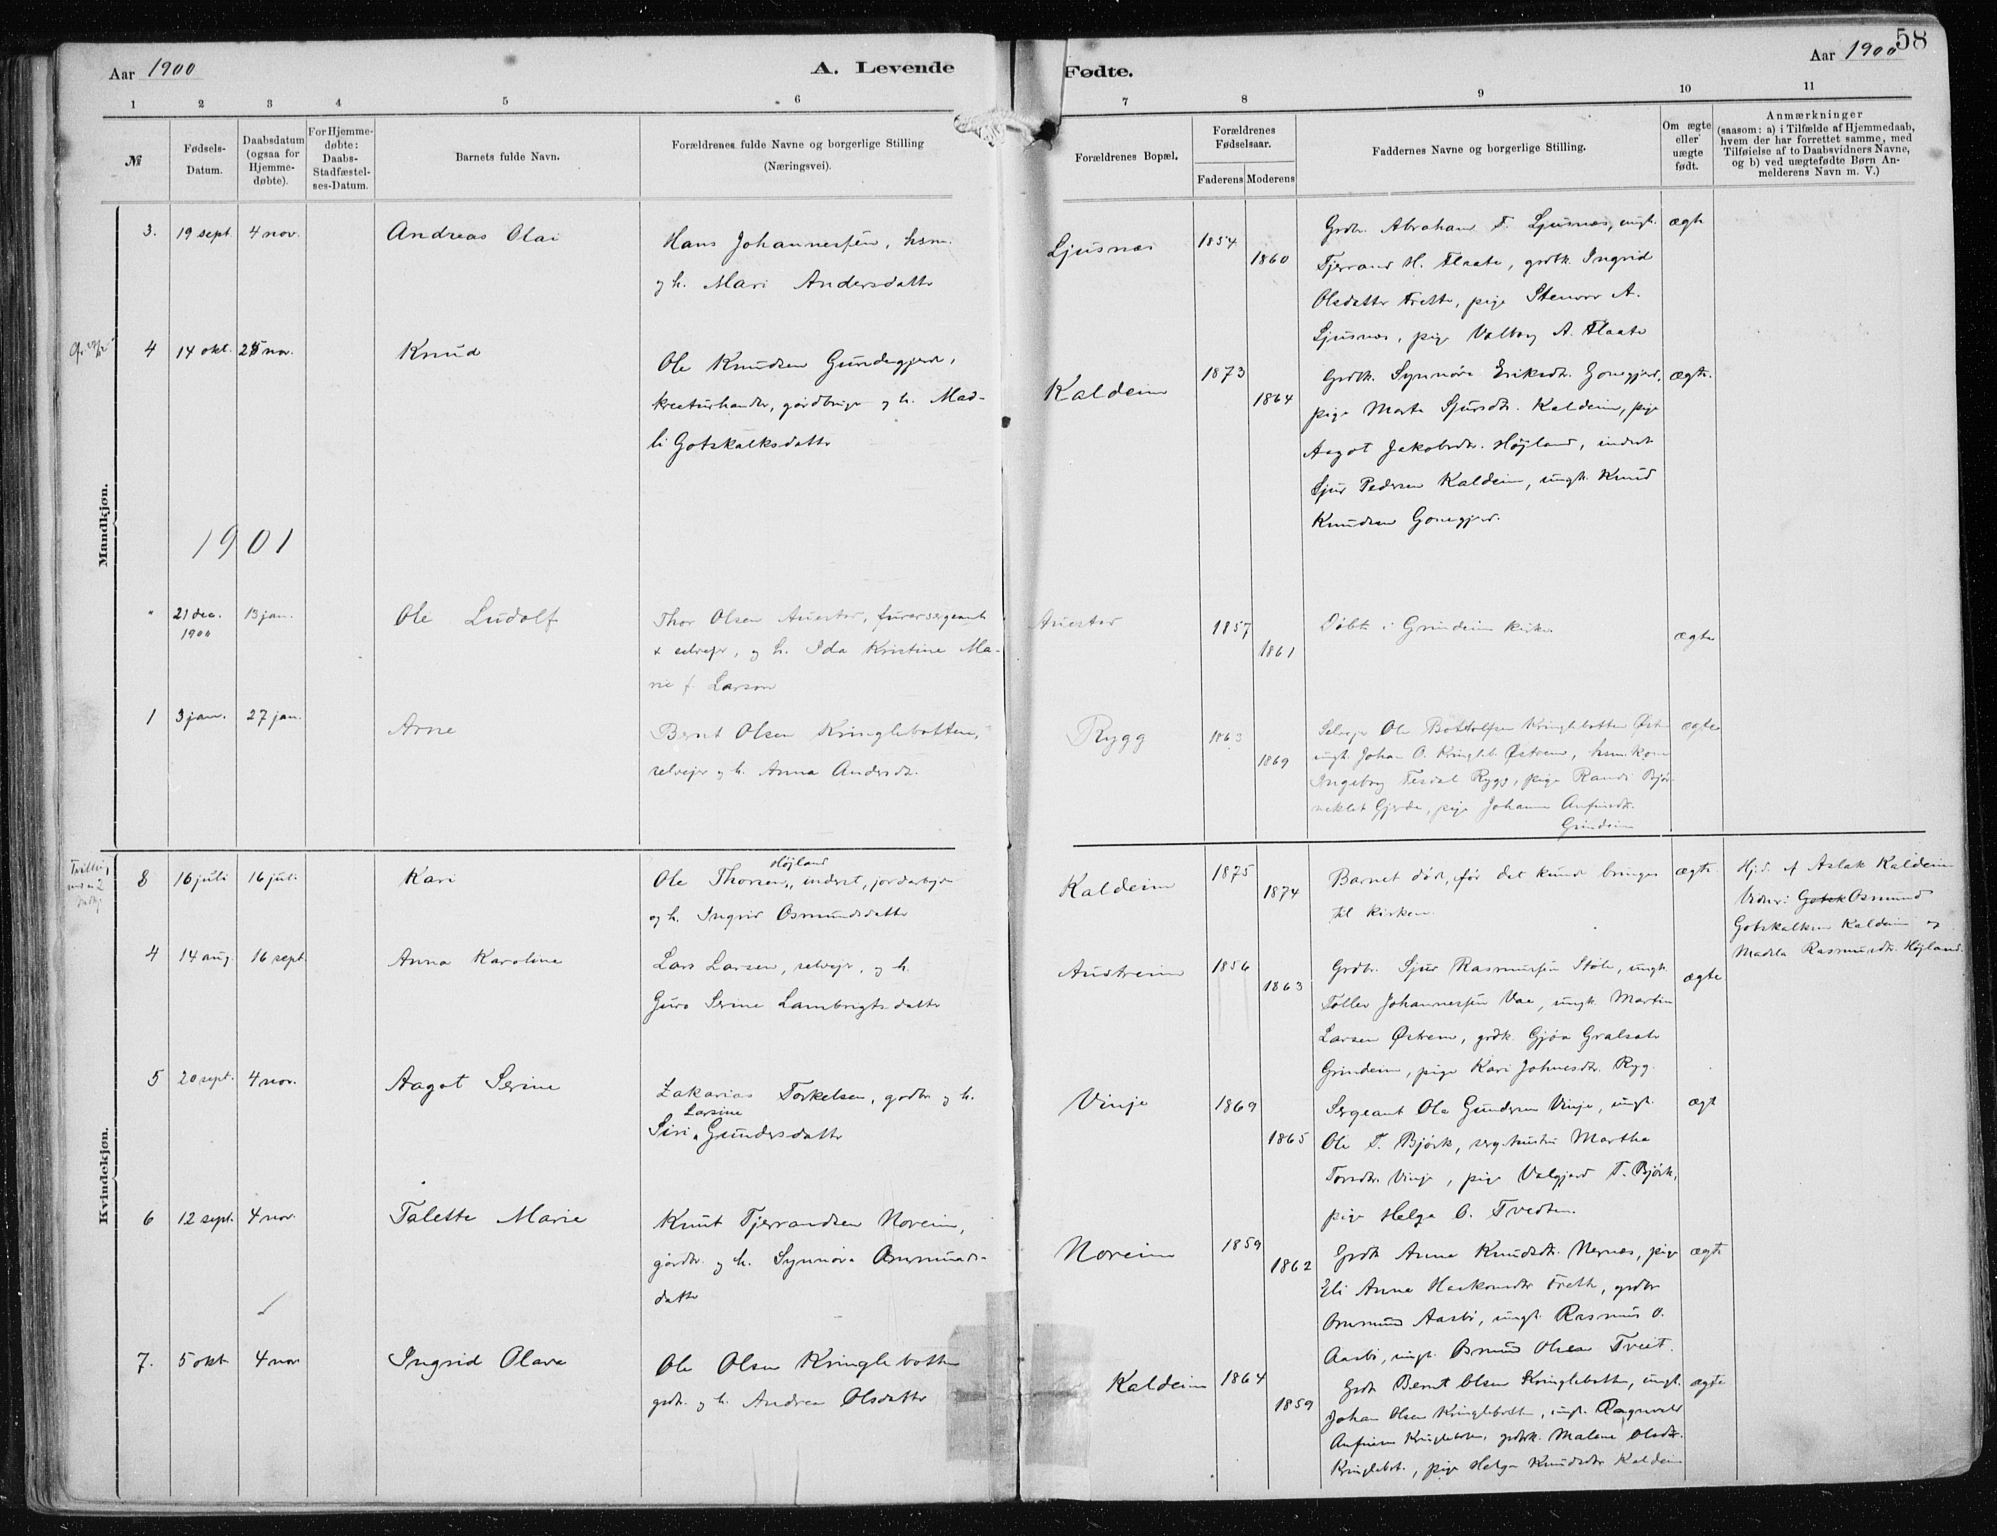 58
Aar 1900
A. Levende
Fødte.
Aar 1900
1 2 3 4 5 6 7 8 9 10 11
№
Fødsels-
Datum.
Daabsdatum
(ogsaa for
Hjemme-
døbte).
For Hjemme-
døbte:
Daabs-
Stadfæstel-
ses-Datum.
Barnets fulde Navn.
Forældrenes fulde Navne og borgerlige Stilling
(Næringsvei).
Forældrenes Bopæl.
Forældrenes
Fødselsaar.
Faderens Moderens
Faddernes Navne og borgerlige Stilling.
Om ægte
eller
uægte
født.
Anmærkninger
(saasom: a) i Tilfælde af Hjemmedaab,
hvem der har forrettet samme, med
Tilføielse af to Daabsvidners Navne,
og b) ved uægtefødte Børn An-
melderens Navn m. V.)
Mandkjøn.
3. 19 sept. 4 nov. Andreas Olai
Hans Johannessen, hsm.
og h. Mari Andersdatter
Ljusnæs
1854
1860
Grdbr. Abraham T. Ljusnæs, ungk.
Tjerrand H. Flaate, grdbk. Ingrid
Olsdatter Frette, pige Stenvor A.
Ljusnæs, pige Valborg A. Flaate
ægte
4 14 okt. 25 nov. Knud
Ole Knudsen Gundegjerd,
kreturhandler, gårdbruger og h. Mad-
li Gotskalksdatter
Kaldeim
1873
1864
Grdbk. Synnøva Eriksdtr. Gonegjerd,
pige Marta Sjursdtr. Kaldeim, pige
Aagot Jakobsdtr. Højland, inderst
Sjur Pedersen Kaldeim, ungk. Knud
Knudsen Gonegjerd.
ægte.
1901
" 21 dec. 1900 13 jan. Ole Ludolf
Thor Olsen Auestad, furersergeant
& selvejer, og h. Ida Kristine Ma-
rie f. Larson
Auestad
1857
1861
Døbt i Grindeim kirke
ægte
1 3 jan. 27 jan. Arne
Bernt Olsen Kringlebotten,
selvejer og h. Anna Andersdtr.
Rygg
1863
1869
Selvejer Ole Bottolfsen Kringlebotten Østrem
ungk. Johan O. Kringleb. Østrem, hsm.kone
Ingeborg Tesdal Rygg, pige Randi Bjør-
neklet Gjerde, pige Johanne Anfinsdtr.
Grindeim
ægte
Kvindekjøn.
8 16 juli 16 juli Kari
Ole Thorsen Højland, inderst, jordarbejder
og h. Ingrid Osmundsdatter
Kaldeim
1875
1874
Barnet død, før det kunde bringes
til kirken.
ægte
Hjd. af Aslak Kaldeim
Vidner: Gotsk Osmund
Gotskalksen Kaldeim og
Madela Rasmusdtr. Højland.
4 14 aug. 16 sept. Anna Karoline
Lars Larsen, selvejer, og h.
Guro Serine Lambrigtsdatter
Austreim
1856
1863
Grdbr. Sjur Rasmussen Støle, ungk.
Tollev Johannessen Vae, ungk. Martin
Larsen Østrem, grdbk. Gjøa Gralsdtr
Grindeim, pige Kari Johnesdtr. Ryg.
ægte
5 20 sept. 4 nov. Aagot Serine
Zakarias Torkelsen, grdbr og h.
Siri Larsine Gundersdatter
Vinje
1869
1865
Sergeant Ole Gundersen Vinje, ungk.
Ole T. Bjørk, serg.hustru Martha
Torsdtr. Vinje, pige Valgjerd T. Bjørk,
pige Helga O. Tvedten.
ægte
6 12 sept. 4 nov. Talette Marie
Knut Tjerrandsen Noreim,
gårdbr. og h. Synnøva Osmunds-
datter
Noreim
1859
1862
Grdbk. Anna Knudsdtr. Nernæs, pige
Eli Anna Haakonsdtr Frette, grdbr
Osmund Aasbø, ungk. Rasmus O.
Aasbø, ungk. Osmund Olsen Tveit.
ægte
7. 5 okt. 4 nov Ingrid Olava
Ole Olsen Kringlebotten
grdbr. og h. Andrea Olsdatter
Kaldeim
1864
1859
Grdbr Bernt Olsen Kringlebotten, ungk.
Johan Olsen Kringlebotten, ungk. Ragnvald
Anfinsen Kringlebotten, grdbrk. Malene Olsdtr.
Kringlebot., pige Helga Knudsdtr Kaldeim
ægte